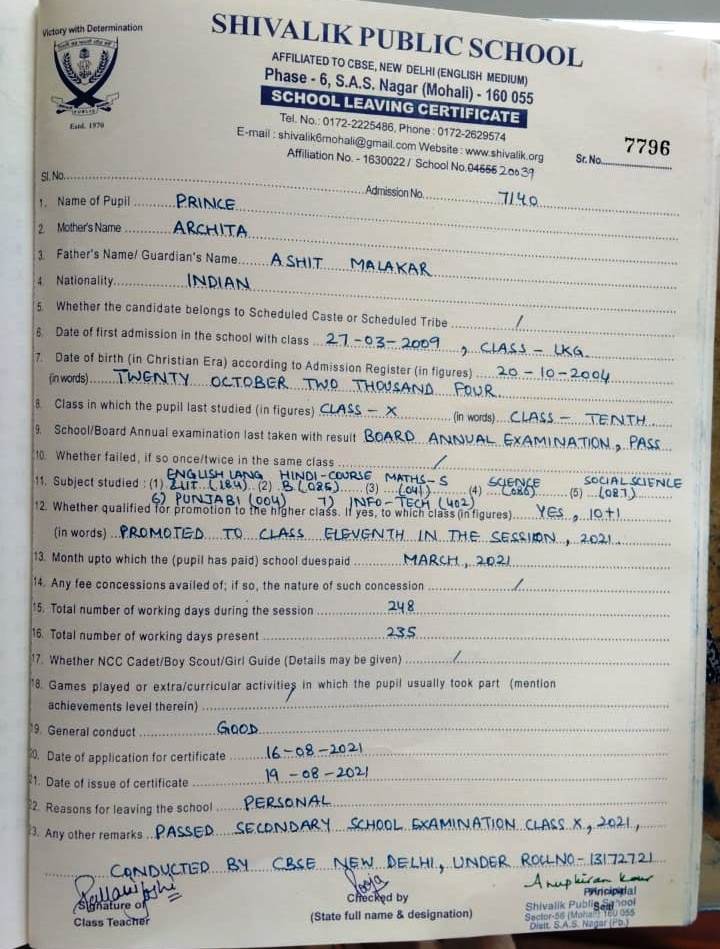 Victory with Determination
SHIVALIK PUBLIC SCHOOL
AFFILIATED TO CBSE, NEW DELHI (ENGLISH MEDIUM)
Phase - 6, S.A.S. Nagar (Mohali) - 160 055
SCHOOL LEAVING CERTIFICATE
PUBLIC
Estd. 1970
Tel. No.: 0172-2225486, Phone : 0172-2629574
E-mail : shivalik6mohali@gmail.com Website : www.shivalik.org
Affiliation No. - 1630022 / School No. 04555 20039
Sr. No. 7796
Sl. No. Admission No. 7140
1. Name of Pupil PRINCE
2. Mother's Name ARCHITA
3. Father's Name/ Guardian's Name ASHIT MALAKAR
4. Nationality INDIAN
5. Whether the candidate belongs to Scheduled Caste or Scheduled Tribe /
6. Date of first admission in the school with class 27-03-2009, CLASS - LKG.
7. Date of birth (in Christian Era) according to Admission Register (in figures) 20-10-2004
(in words) TWENTY OCTOBER TWO THOUSAND FOUR
8. Class in which the pupil last studied (in figures) CLASS - X (in words) CLASS - TENTH
9. School/Board Annual examination last taken with result BOARD ANNUAL EXAMINATION, PASS
10. Whether failed, if so once/twice in the same class /
11. Subject studied : (1) ENGLISH LANG & LIT (184) (2) HINDI-COURSE B (085) (3) MATHS-S (041) (4) SCIENCE (086) (5) SOCIAL SCIENCE (087)
6) PUNJABI (004) 7) INFO-TECH (402)
12. Whether qualified for promotion to the higher class. If yes, to which class (in figures) YES, 10+1
(in words) PROMOTED TO CLASS ELEVENTH IN THE SESSION, 2021.
13. Month upto which the (pupil has paid) school duespaid MARCH, 2021
14. Any fee concessions availed of; if so, the nature of such concession /
15. Total number of working days during the session 248
16. Total number of working days present 235
17. Whether NCC Cadet/Boy Scout/Girl Guide (Details may be given) /
18. Games played or extra/curricular activities in which the pupil usually took part (mention
achievements level therein) /
19. General conduct GOOD
20. Date of application for certificate 16-08-2021
21. Date of issue of certificate 19-08-2021
22. Reasons for leaving the school PERSONAL
23. Any other remarks PASSED SECONDARY SCHOOL EXAMINATION CLASS X, 2021,
CONDUCTED BY CBSE NEW DELHI, UNDER ROLLNO- 13172721
Pallavi Joshi Pooja Anupkiran Kaur
Signature of Class Teacher
Checked by
(State full name & designation)
Principal
Seal
Shivalik Public School
Sector-56 (Mohali) 160 055
Distt. S.A.S. Nagar (Pb.)